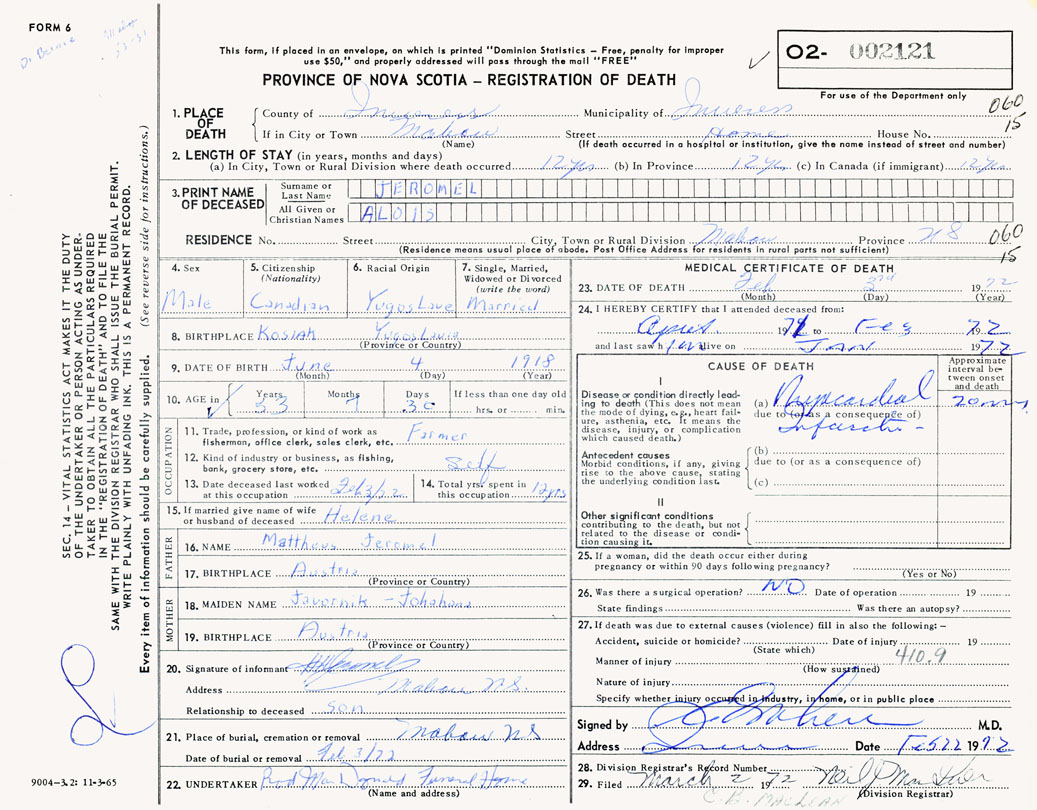 FORM 6
Dr Bernie
This form, if placed in an envelope, on which is printed "Dominion Statistics – Free, penalty for improper
use $50," and properly addressed will pass through the mail "FREE"
PROVINCE OF NOVA SCOTIA – REGISTRATION OF DEATH
O2- 002121
For use of the Department only
060
15
1. PLACE OF DEATH
County of Inverness Municipality of Inverness
If in City or Town Mabou Street Home House No.
(Name) (If death occurred in a hospital or institution, give the name instead of street and number)
2. LENGTH OF STAY (in years, months and days)
(a) In City, Town or Rural Division where death occurred 12 yrs (b) In Province 12 yrs (c) In Canada (if immigrant) 12 yrs
3. PRINT NAME OF DECEASED
Surname or Last Name JEROMEL
All Given or Christian Names ALOIS
RESIDENCE No. Street City, Town or Rural Division Mabou Province NS
(Residence means usual place of abode. Post Office Address for residents in rural parts not sufficient)
060
15
4. Sex
Male
5. Citizenship
(Nationality)
Canadian
6. Racial Origin
Yugoslave
7. Single, Married,
Widowed or Divorced
(write the word)
Married
8. BIRTHPLACE Yugoslavia
(Province or Country)
9. DATE OF BIRTH June 4 1918
(Month) (Day) (Year)
10. AGE in
Years Months Days If less than one day old
53 7 30 hrs. or min.
OCCUPATION
11. Trade, profession, or kind of work as
fisherman, office clerk, sales clerk, etc. Farmer
12. Kind of industry or business, as fishing,
bank, grocery store, etc. Self
13. Date deceased last worked
at this occupation Feb 3/72
14. Total yrs. spent in
this occupation 12 yrs
15. If married give name of wife
or husband of deceased Helene
FATHER
16. NAME Mattheus Jeromel
17. BIRTHPLACE Austria
(Province or Country)
MOTHER
18. MAIDEN NAME Javornik – Johahana
19. BIRTHPLACE Austria
(Province or Country)
20. Signature of informant
Address Mabou N.S.
Relationship to deceased Son
21. Place of burial, cremation or removal Mabou NS
Date of burial or removal Feb 3/72
22. UNDERTAKER Rod MacDonald Funeral Home
(Name and address)
MEDICAL CERTIFICATE OF DEATH
23. DATE OF DEATH Feb 3rd 1972
(Month) (Day) (Year)
24. I HEREBY CERTIFY that I attended deceased from:
1971 to Feb 1972
and last saw him alive on JAN 1972
CAUSE OF DEATH
Approximate
interval be-
tween onset
and death
I
Disease or condition directly lead-
ing to death (This does not mean
the mode of dying, e.g., heart fail-
ure, asthenia, etc. It means the
disease, injury, or complication
which caused death.)
(a) Myocardial
due to (or as a consequence of)
Infarction
Antecedent causes
Morbid conditions, if any, giving
rise to the above cause, stating
the underlying condition last.
(b)
due to (or as a consequence of)
(c)
II
Other significant conditions
contributing to the death, but not
related to the disease or condi-
tion causing it.
25. If a woman, did the death occur either during
pregnancy or within 90 days following pregnancy?
(Yes or No)
26. Was there a surgical operation? NO Date of operation 19
State findings Was there an autopsy?
27. If death was due to external causes (violence) fill in also the following: –
Accident, suicide or homicide? Date of injury 19
(State which)
410.9
Manner of injury
(How sustained)
Nature of injury
Specify whether injury occurred in industry, in home, or in public place
Signed by M.D.
Address Date Feb 22 1972
28. Division Registrar's Record Number
29. Filed March 2 1972
(Division Registrar)
C. B. MACLEAN
SEC. 14 – VITAL STATISTICS ACT MAKES IT THE DUTY
OF THE UNDERTAKER OR PERSON ACTING AS UNDER-
TAKER TO OBTAIN ALL THE PARTICULARS REQUIRED
IN THE "REGISTRATION OF DEATH" AND TO FILE THE
SAME WITH THE DIVISION REGISTRAR WHO SHALL ISSUE THE BURIAL PERMIT.
WRITE PLAINLY WITH UNFADING INK. THIS IS A PERMANENT RECORD.
Every item of information should be carefully supplied. (See reverse side for instructions.)
9004–3.2: 11-3-65